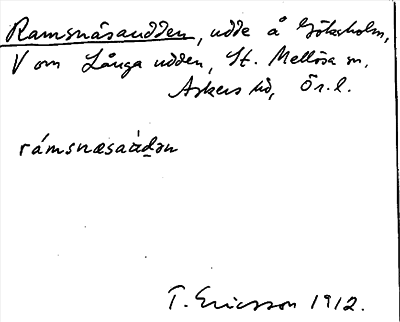 Ramsnäsaudden, udde å Göksholm,
V om Långa udden, St. Mellösa sn,
Askers hd, Ör. l.
rámsnæsaùdən
T. Ericsson 1912.